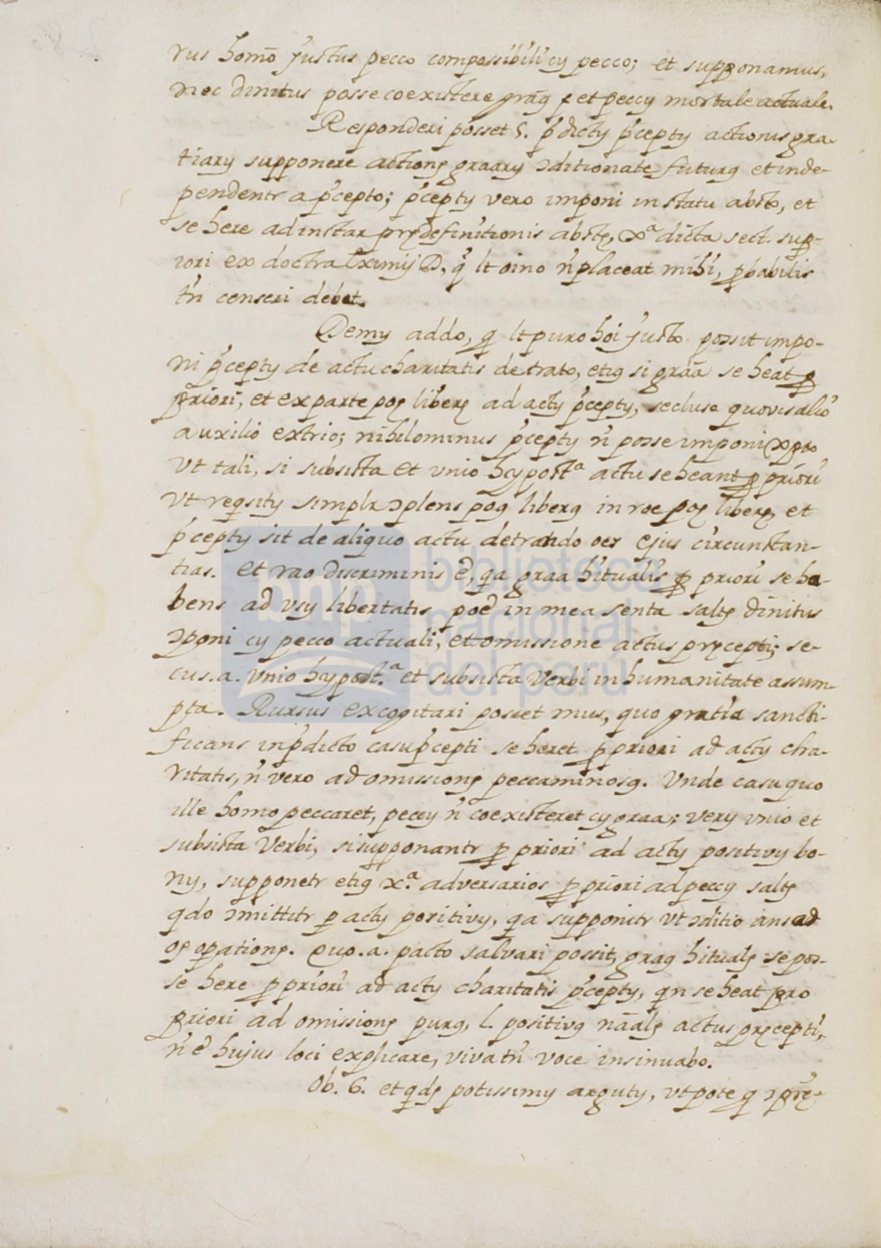 rus homõ justus pecco compossibili cũ pecco; et supponamus,
nec dinitus posse coexistere graã et peccũ mortale actuale.
Responderi posset 5. p̃dictũ p̃ceptũ actionis gra-
tiarũ supponere actionẽ graarũ ↄditionate futurã et inde-
pendentr a p̃cepto; p̃ceptũ vero imponi in statu absto, et
se here ad instar prędefinitionis abstę, xᵃ dicta sect. sup-
iori ex doctra Eximij D. q̃ lt oino ñ placeat mihi, ꝓbabilis
tñ censeri debet.
Demũ addo, q̃ lt puro hoi justo possit impo-
ni p̃ceptũ de actu charitatis detrãto, etiã si graã se heat ꝓ
priori, et ex parte poę liberę ad actũ p̃ceptũ, secluso quovis alio
auxilio extrio; nihilominus p̃ceptũ ñ posse imponi xpo
Vt tali, si subsista et vnio hypostᵃ actu se heant ꝓ priori
Vt reqsitũ simplr ↄplens poã liberã in roe poę liberę, et
p̃ceptũ sit de aliquo actu detrando oes ejus circunstan-
tias. et rao discriminis ẽ, qa graa hitualis ꝓ priori se ha-
bens ad vsũ libertatis poẽ in mea senta saltẽ dinitus
ↄponi cũ pecco actuali, et omissione actus pręcepti; se-
cus.a. vnio hypost.ᵃ et subsista Verbi in humanitate assum-
pta. Rursus excogitari posset mus, quo gratia sancti-
ficans in p̃dicto casu p̃cepti se heret ꝓ priori ad actũ cha-
ritatis, ñ vero ad omissionẽ peccaminosã. Vnde casu quo
ille homo peccaret, peccũ ñ coexisteret cũ graa; verũ vnio et
subsista Verbi, si supponantr ꝓ priori ad actũ positivũ bo-
nũ, supponetr etiã xᵃ adversarios ꝓ priori ad peccũ saltẽ
qdo ↄmittitr ꝑ actũ positivũ, qa supponitr vt ↄditio ans ad
oẽ opationẽ. Quo.a. pacto salvari possit, graã hitualẽ se pos-
se here ꝓ priori ad actũ charitatis p̃ceptũ, qn se heat pro
priori ad omissionẽ purã, l. positivã nãalẽ actus pręcepti,
ñ ẽ hujus loci explicare, viva tñ voce insinuabo.
Ob. 6. et qdẽ potissimũ argutũ, vt pote q̃ ↄp̃ře-
biblioteca
nacional
del perú